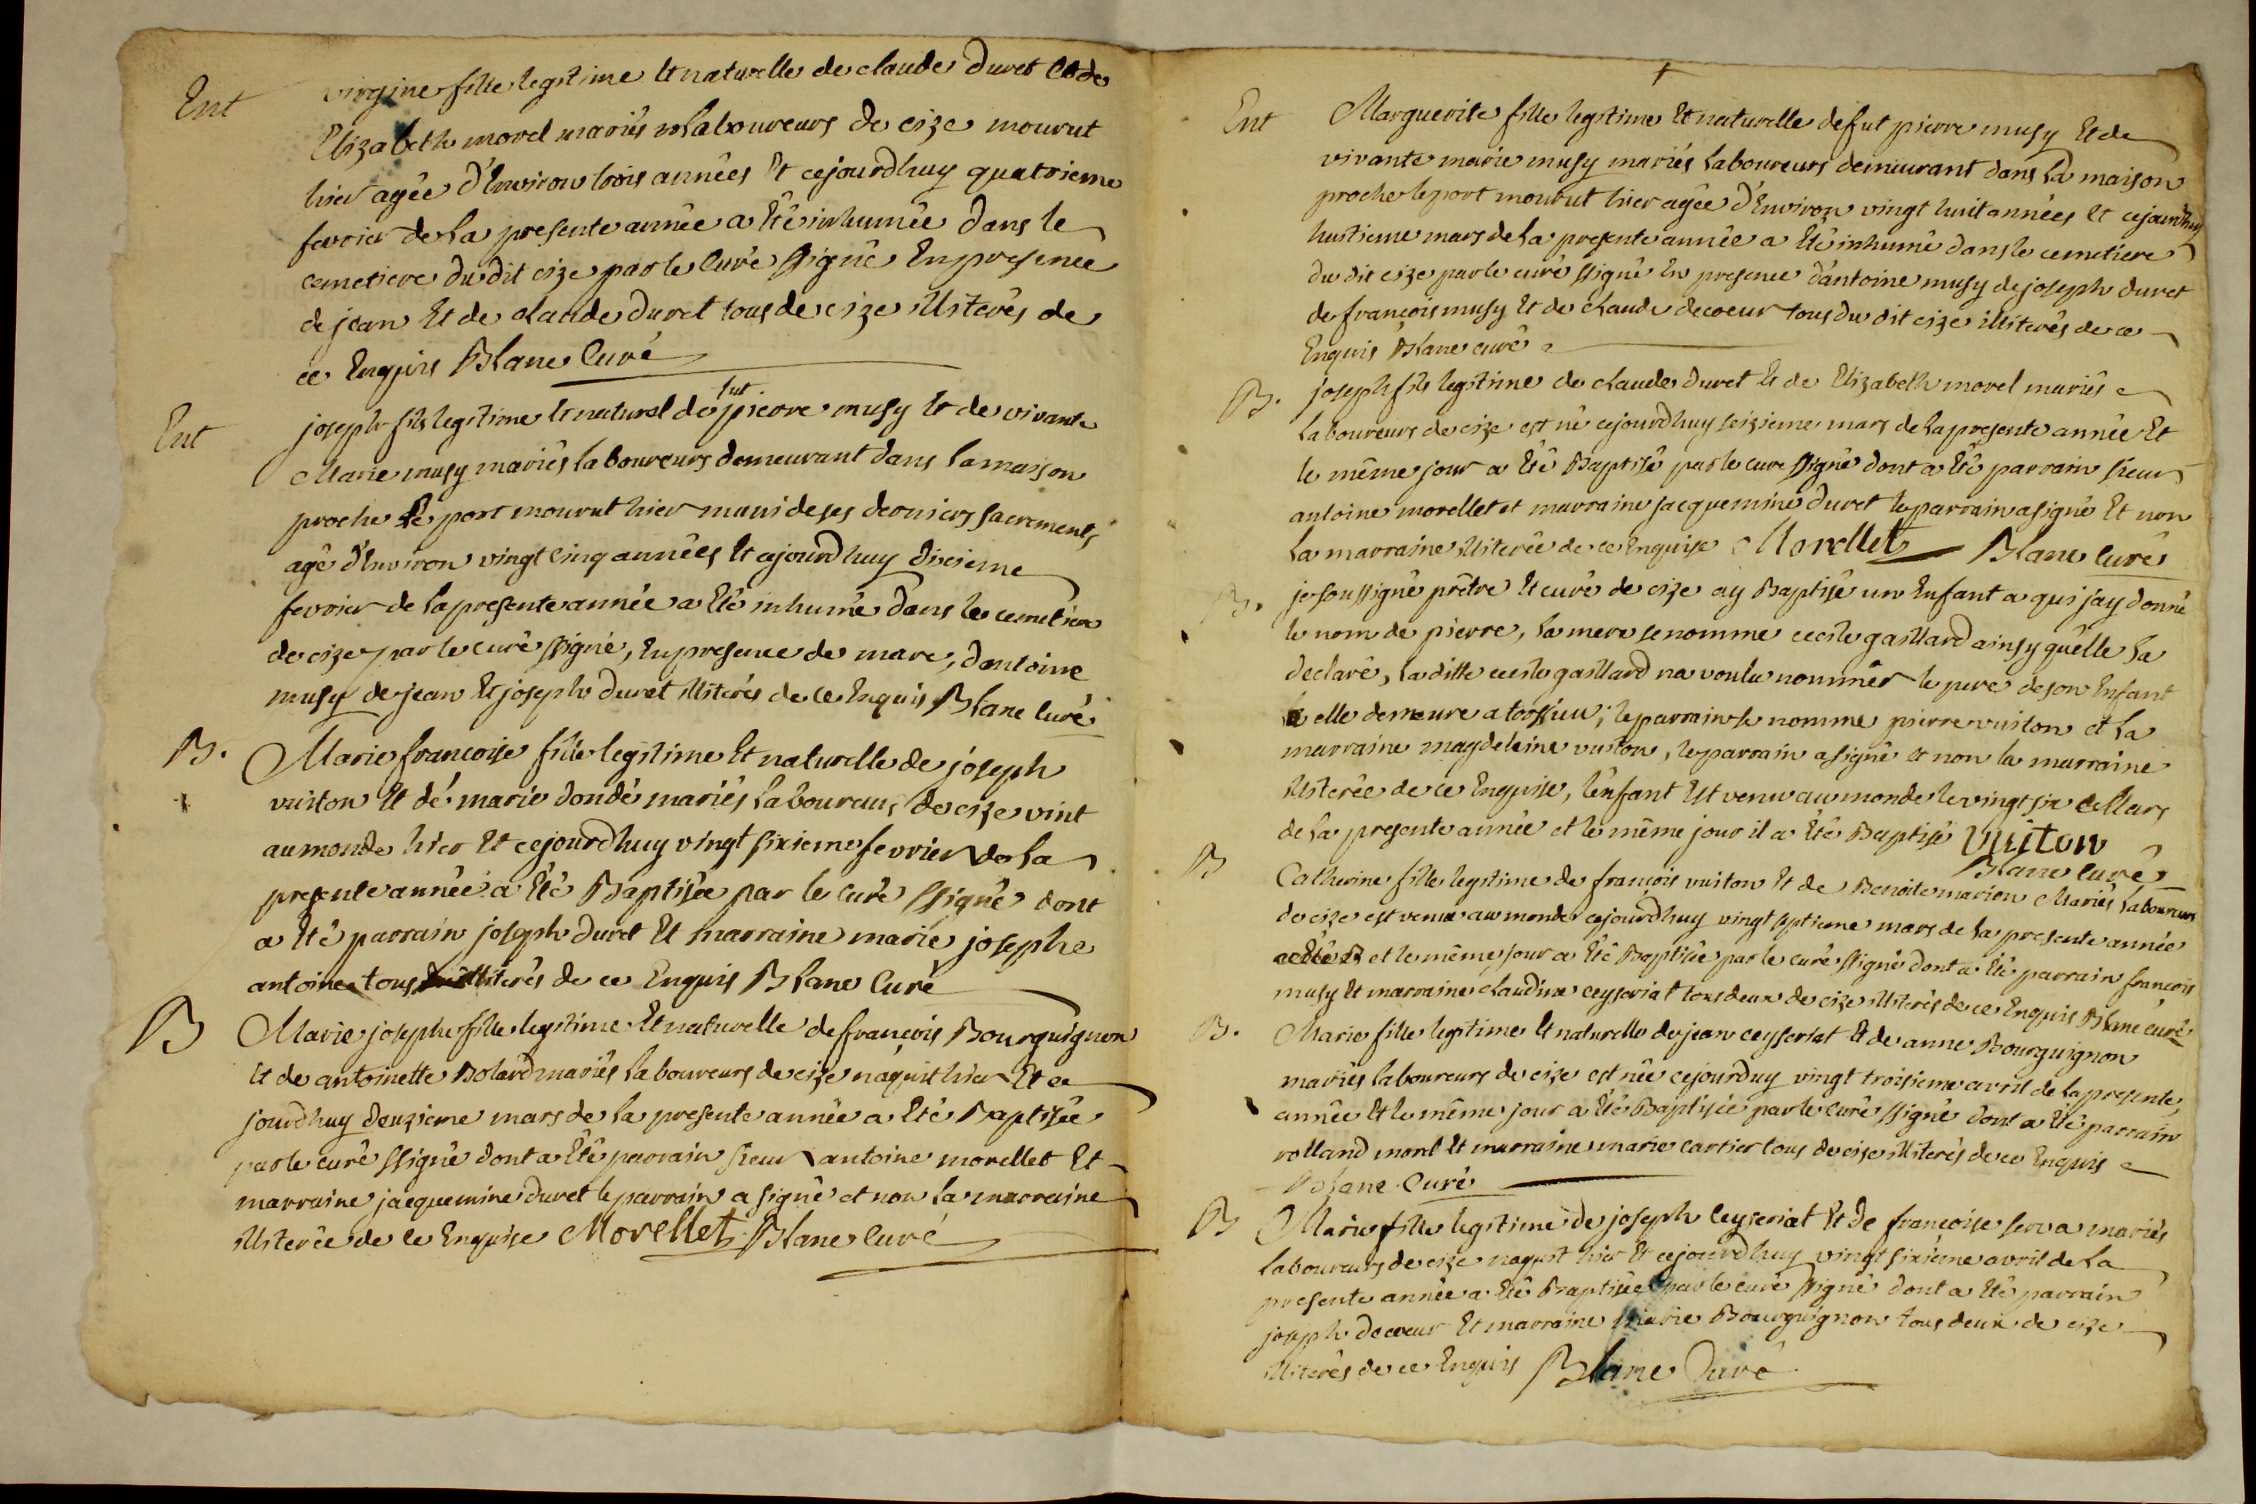 Ent
virgine fille legitime et naturelle de claude duret et de
Elizabeth morel mariés laboureurs de cize mourut
hier agée d'Environ trois années Et cejourdhuy quatrieme
fevrier de la presente année a Eté inhumée dans le
cemetiere du dit cize par le Curé ssigné En presence
de jean Et de claude duret tous de cize illiterés de
ce Enquis Blanc Curé
Ent
joseph fils legitime et naturel de fut pierre musy et de vivante
Marie musy mariés laboureurs demeurant dans la maison
proche le port mourut hier muni de ses derniers sacrements
agé d'Environ vingt cinq années Et cejourdhuy dixieme
fevrier de la presente année a Eté inhumé dans le cemetiere
de cize par le curé ssigné, En presence de marc, d'antoine
musy de jean Et joseph duret illiterés de ce Enquis Blanc Curé
B.
Marie francoise fille legitime Et naturelle de joseph
vuiton Et de marie dondé mariés laboureurs de cize vint
au monde hier Et cejourdhuy vingt sixieme fevrier de la
presente année a Eté Baptisée par le Curé ssigné dont
a Eté parrain joseph duret Et marraine marie josephe
antoine tous illiterés de ce Enquis Blanc Curé
B
Marie josephe fille legitime Et naturelle de francois Bourguignon
Et de antoinette Bolard mariés laboureurs de cize naquit hier Et ce
jourdhuy deuzieme mars de la presente année a Eté Baptisée
par le curé ssigné dont a Eté parrain sieur antoine morellet Et
marraine jacquemine duret le parrain a signé et non la marraine
illiterée de ce Enquise Morellet Blanc Curé
Ent
Marguerite fille legitime Et naturelle de fut pierre musy Et de
vivante marie musy mariés laboureurs demeurant dans la maison
proche le port mourut hier agée d'Environ vingt huit années Et cejourdhuy
huitieme mars de la presente année a Eté inhumé dans le cemetiere
du dit cize par le curé ssigné En presence d'antoine musy de joseph duret
de francois musy Et de claude decoeur tous du dit cize illiterés de ce
Enquis Blanc curé
B.
joseph fils legitime de claude duret Et de Elizabeth morel mariés
laboureurs de cize est né cejourdhuy seizieme mars de la presente année Et
le même jour a Eté Baptisé par le curé ssigné dont a Eté parrain sieur
antoine morellet et marraine jacquemine duret le parrain a signé Et non
la marraine illiterée de ce Enquise Morellet Blanc Curé
B.
je soussigné prêtre Et curé de cize ay Baptisé un Enfant a qui jay donné
le nom de pierre, la mere se nomme cecile gaillard ainsy quelle la
declaré, la ditte cecile gaillard na voulu nommer le pere de son Enfant
elle demeure a tossiu; le parrain se nomme pierre vuiton et la
marraine magdeleine vuiton, le parrain a signé et non la marraine
illiterée de ce Enquise, l'enfant Est venu au monde le vingt six de Mars
de la presente année et le même jour il a Eté Baptisé vuiton
Blanc Curé
B
Catherine fille legitime de francois vuiton Et de Benoite marion Mariés laboureurs
de cize est venue au monde cejourdhuy vingt septieme mars de la presente année
et le même jour a Eté Baptisée par le curé ssigné dont a Eté parrain francois
musy Et marraine claudine ceyseriat tous deux de cize illiterés de ce Enquis Blanc curé
B.
Marie fille legitime Et naturelle de jean ceyseriat Et de anne Bourguignon
mariés laboureurs de cize est née cejourduy vingt troisieme avril de la presente
année Et le même jour a Eté Baptisée par le curé ssigné dont a Eté parrain
rolland morel Et marraine marie cartier tous de cize illiterés de ce Enquis
Blanc Curé
B
Marie fille legitime de joseph Ceyseriat Et de francoise serva mariés
laboureurs de cize naquit hier Et cejourdhuy vingt sixieme avril de la
presente année a Eté Baptisée par le curé ssigné dont a Eté parrain
joseph decoeur Et marraine Marie Bourguignon tous deux de cize
illiterés de ce Enquis Blanc Curé